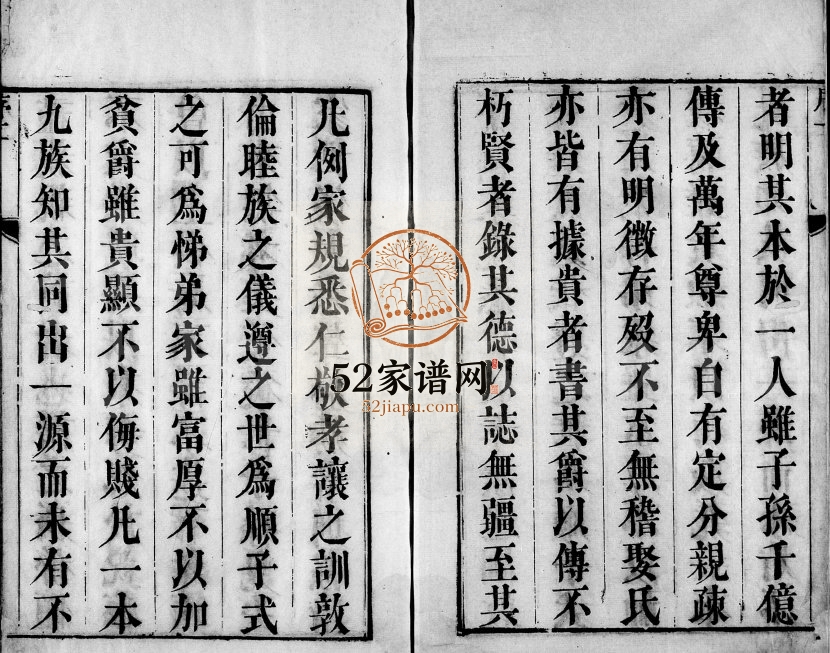 者明其本於一人雖子孫千億
傳及萬年尊卑自有定分親疎
亦有明徵存歿不至無稽娶氏
亦皆有據貴者書其爵以傳不
朽賢者錄其德以誌無疆至其
凡例家規悉仁敬孝讓之訓敦
倫睦族之儀遵之世爲順子式
之可爲悌弟家雖富厚不以加
貧爵雖貴顯不以侮賤凡一本
九族知其同出一源而未有不
52家谱网
52jiapu.com